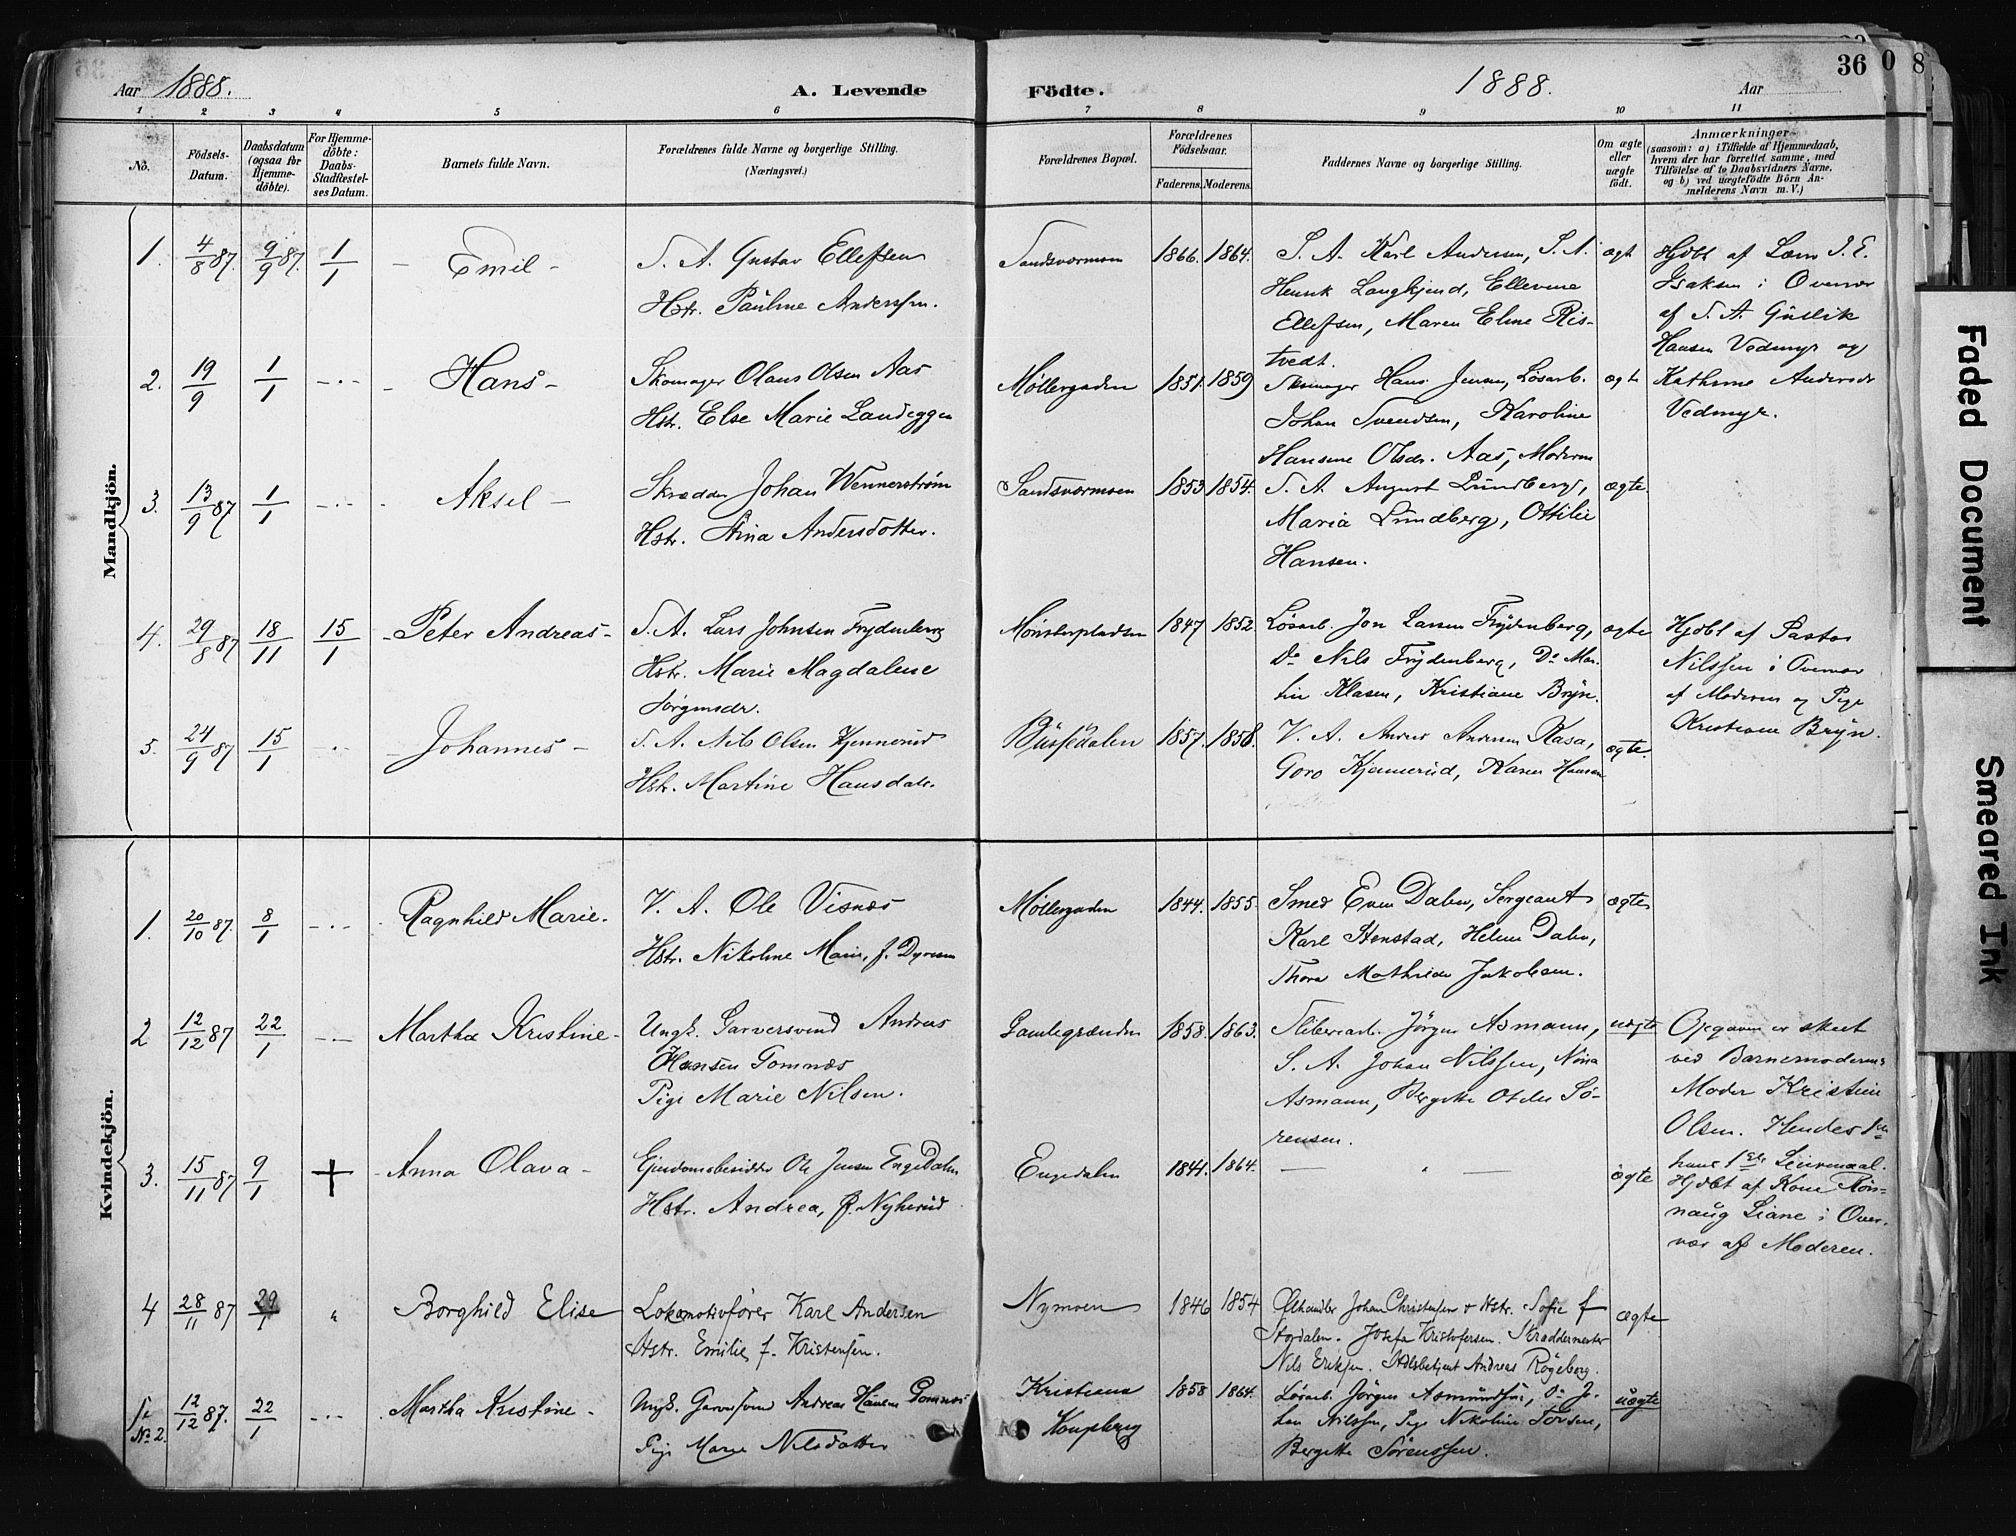 Aar 1888. A. Levende Födte. 1888. Aar 36
1 2 3 4 5 6 7 8 9 10 11
No.
Födsels-Datum.
Daabsdatum (ogsaa for Hjemmedöbte).
For Hjemmedöbte: Daabs-Stadfestelses Datum.
Barnets fulde Navn.
Forældrenes fulde Navne og borgerlige Stilling.
(Næringsvei.)
Forældrenes Bopæl.
Forældrenes Födselsaar.
Faderens. Moderens.
Faddernes Navne og borgerlige Stilling.
Om ægte eller uægte födt.
Anmærkninger
(saasom: a) i Tilfælde af Hjemmedaab,
hvem der har forrettet samme, med
Tilföielse af to Daabsvidners Navne,
og b) ved uægtefödte Börn An-
melderens Navn m. V.)
Mandkjön.
1. 4/8 87. 9/9 87. 1/1 – Emil –
S. A. Gustav Ellefsen
Hstr. Pauline Anderssen.
Sandsværmoen 1866. 1864.
S. A. Karl Andersen, S. A.
Henrik Langkjend, Ellevine
Ellefsen, Maren Eline Ris-
tvedt.
ægte
Hjdbt af Lærer I. E.
Isaksen i Overvær
af S. A. Gullik
Hansen Vedmyr og
Kathrine Andersdr
Vedmyr.
2. 19/9 1/1 Hans –
Skomager Olaus Olsen Aas
Hstr. Else Marie Landeggen
Møllergaden 1851. 1859
Skomager Hans Jensen, Løsarb.
Johan Svendsen, Karoline
Hansine Olsdr. Aas, Moderen
ægte
3. 13/9 87 1/1 Aksel –
Skrædder Johan Wennerstrøm
Hstr. Stina Andersdotter.
Sandsværmoen 1853 1854.
S. A. August Lundberg,
Maria Lundberg, Ottilie
Hansen.
ægte
4. 29/8 87 18/11 15/1 – Peter Andreas –
S. A. Lars Johnsen Frydenberg
Hstr. Marie Magdalene
Jørgensdr.
Mønsterpladsen 1847 1852
Løsarb. Jon Larsen Frydenberg,
Do Nils Frydenberg, Do Mar-
tin Klasen, Kristiane Bryn.
ægte
Hjdbt af Pastor
Nilssen i Overvær
af Moderen og Pige
Kristiane Bryn.
5. 24/9 87 15/1 – Johannes –
S. A. Nils Olsen Kjennerud
Hstr. Martine Hansdatr.
Bussedalen 1857. 1858.
V. A. Anders Andersen Kasa,
Goro Kjennerud, Karen Hansen
ægte.
Kvindekjön.
1. 20/10 87. 8/1 Ragnhild Marie.
V. A. Ole Visnæs
Hstr. Nikoline Marie, f. Dyresen
Møllergaden 1844. 1855.
Smed Even Dalen, Sergeant
Karl Stenstad, Helene Dalen,
Thora Mathilde Jakobsen.
ægte
2 12/12 87 22/1 Martha Kristine –
Ungk. Garversvend Andreas
Hansen Gomnæs
Pige Marie Nilsen.
Gamlegrænden 1858. 1863.
Sliberarb. Jörgen Asmann,
S. A. Johan Nilssen, Nina
Asmann, Bergitte Otilie Sö-
rensen.
uægte
Opgaven er skeet
ved Barnemoderens
Moder Kristine
Olsen. Hendes 1ste
hans 1ste Leiermaal.
3. 15/11 87 9/1 + – Anna Olava –
Eiendomsbesidder Ole Jensen Engedalen
Hstr. Andrea, f. Nyherud
Engedalen 1841. 1864. — " —
ægte
Hjdbt af Kone Røn-
naug Liane i Over-
vær af Moderen.
4 28/11 87 29/1 " Borghild Elise
Lokomotivfører Karl Andersen
Hstr. Emilie f. Kristensen.
Nymoen 1846 1854
Ølhandler Johan Christensen & Hstr. Sofie f
Stordalen. Josefa Kristofersen. Skræddermester
Nils Eriksen. Stolsbetjent Andreas Røgeberg.
ægte
Se No 2. 12/12 87. 22/1 Martha Kristine –
Ungk. Garversvend Andreas Hansen Gomnæs
Pige Marie Nilsdatter
Kristiania
Kongsberg
1858 1864.
Løsarb. Jörgen Asmundsen, Do Jo-
han Nilssen, Pige Nikoline Torsen,
Bergitte Sörenssen.
uægte
0 8
Faded Document
Smeared Ink